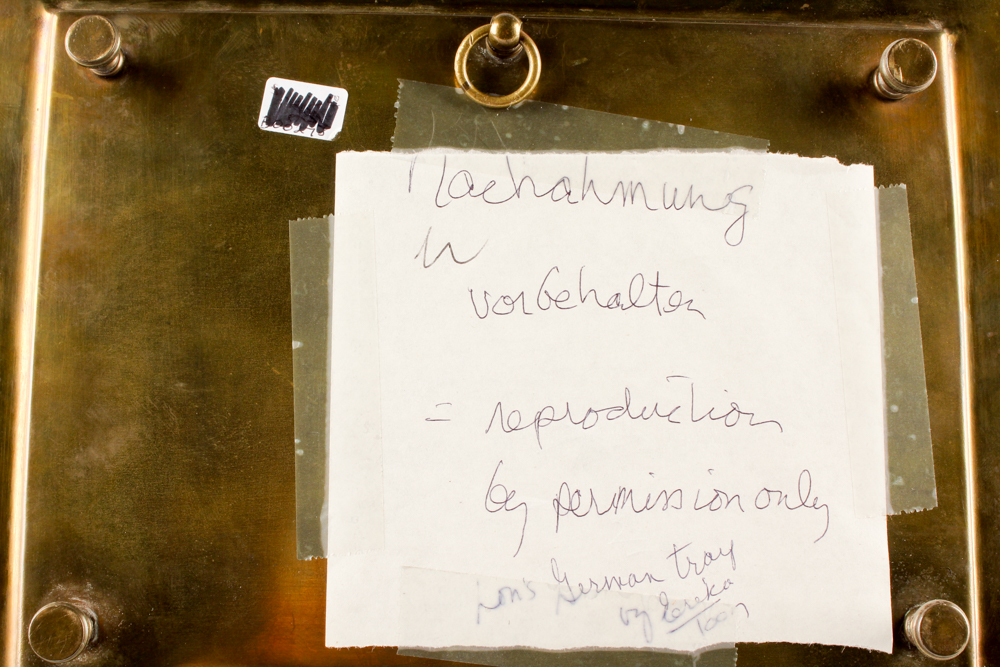 Nachahmung
N
vorbehalten
= reproduction
by permission only
Lon's German tray
by
Toon